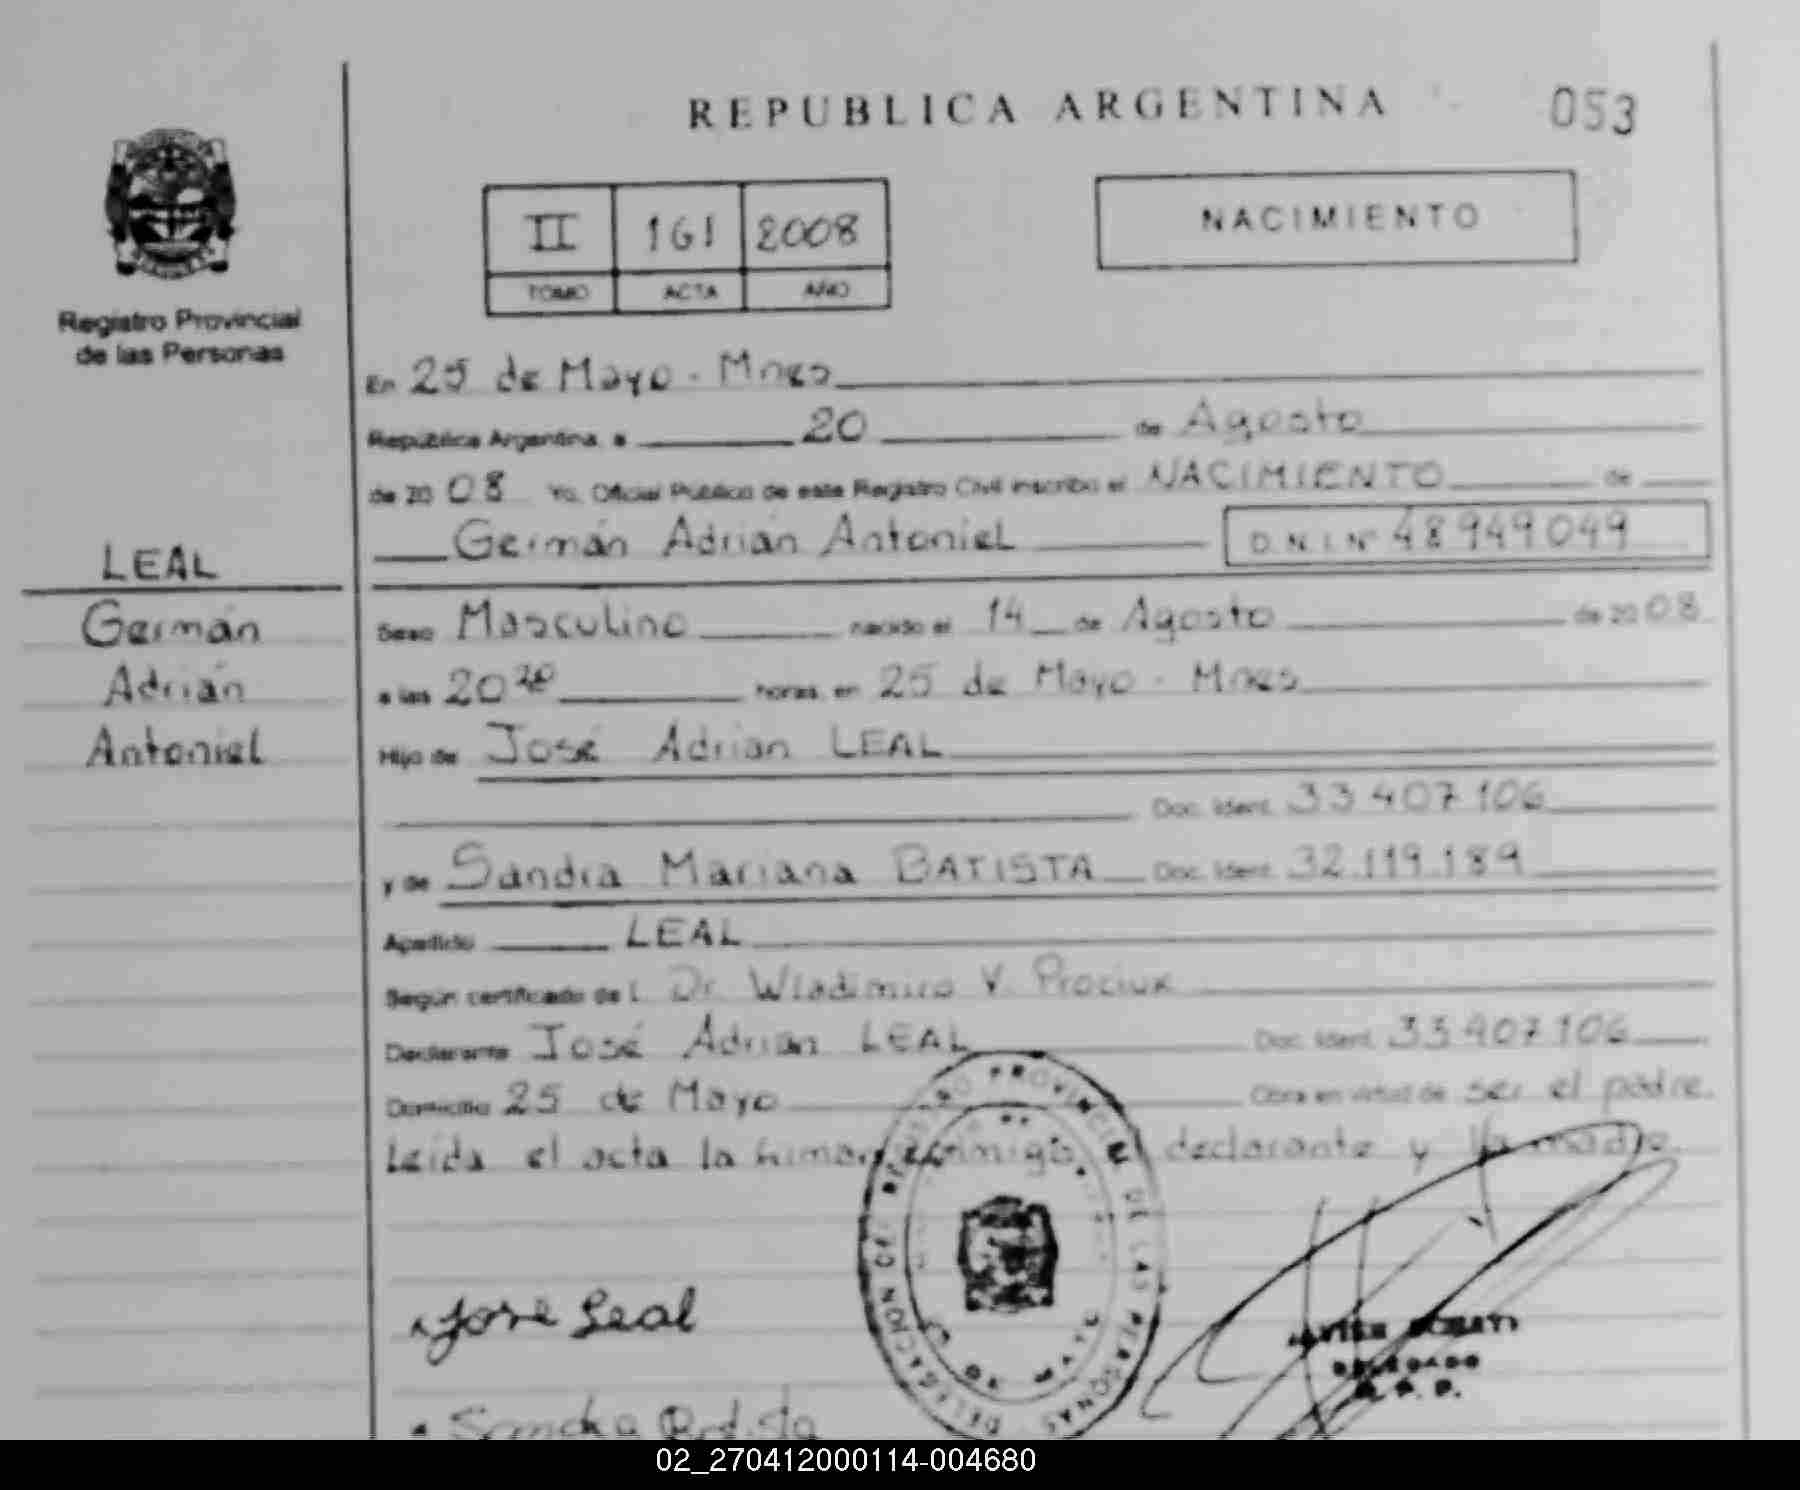 REPUBLICA ARGENTINA 053
II 161 2008
TOMO ACTA AÑO
NACIMIENTO
Registro Provincial
de las Personas
En 25 de Mayo - Mnes
República Argentina, a 20 de Agosto
de 20 08 Yo, Oficial Público de este Registro Civil inscribo el NACIMIENTO de
Germán Adrián Antoniel D.N.I. Nº 48949049
LEAL
Germán
Adrián
Antoniel
Sexo Masculino nacido el 14 de Agosto de 20 08
a las 20 20 horas, en 25 de Mayo - Mnes
Hijo de José Adrian LEAL
Doc. Ident. 33 407 106
y de Sandra Mariana BATISTA Doc. Ident. 32.119.189
Apellido LEAL
Según certificado de l Dr. Wladimiro V. Prociuk
Declarante José Adrian LEAL Doc. Ident. 33 407 106
Domicilio 25 de Mayo Obra en virtud de ser el padre.
Leída el acta la firman conmigo el declarante y la madre.
DELEGACION DEL REGISTRO PROVINCIAL DE LAS PERSONAS
José Leal
DELEGADO
R. P. P.
Sandra Batista
02_270412000114-004680